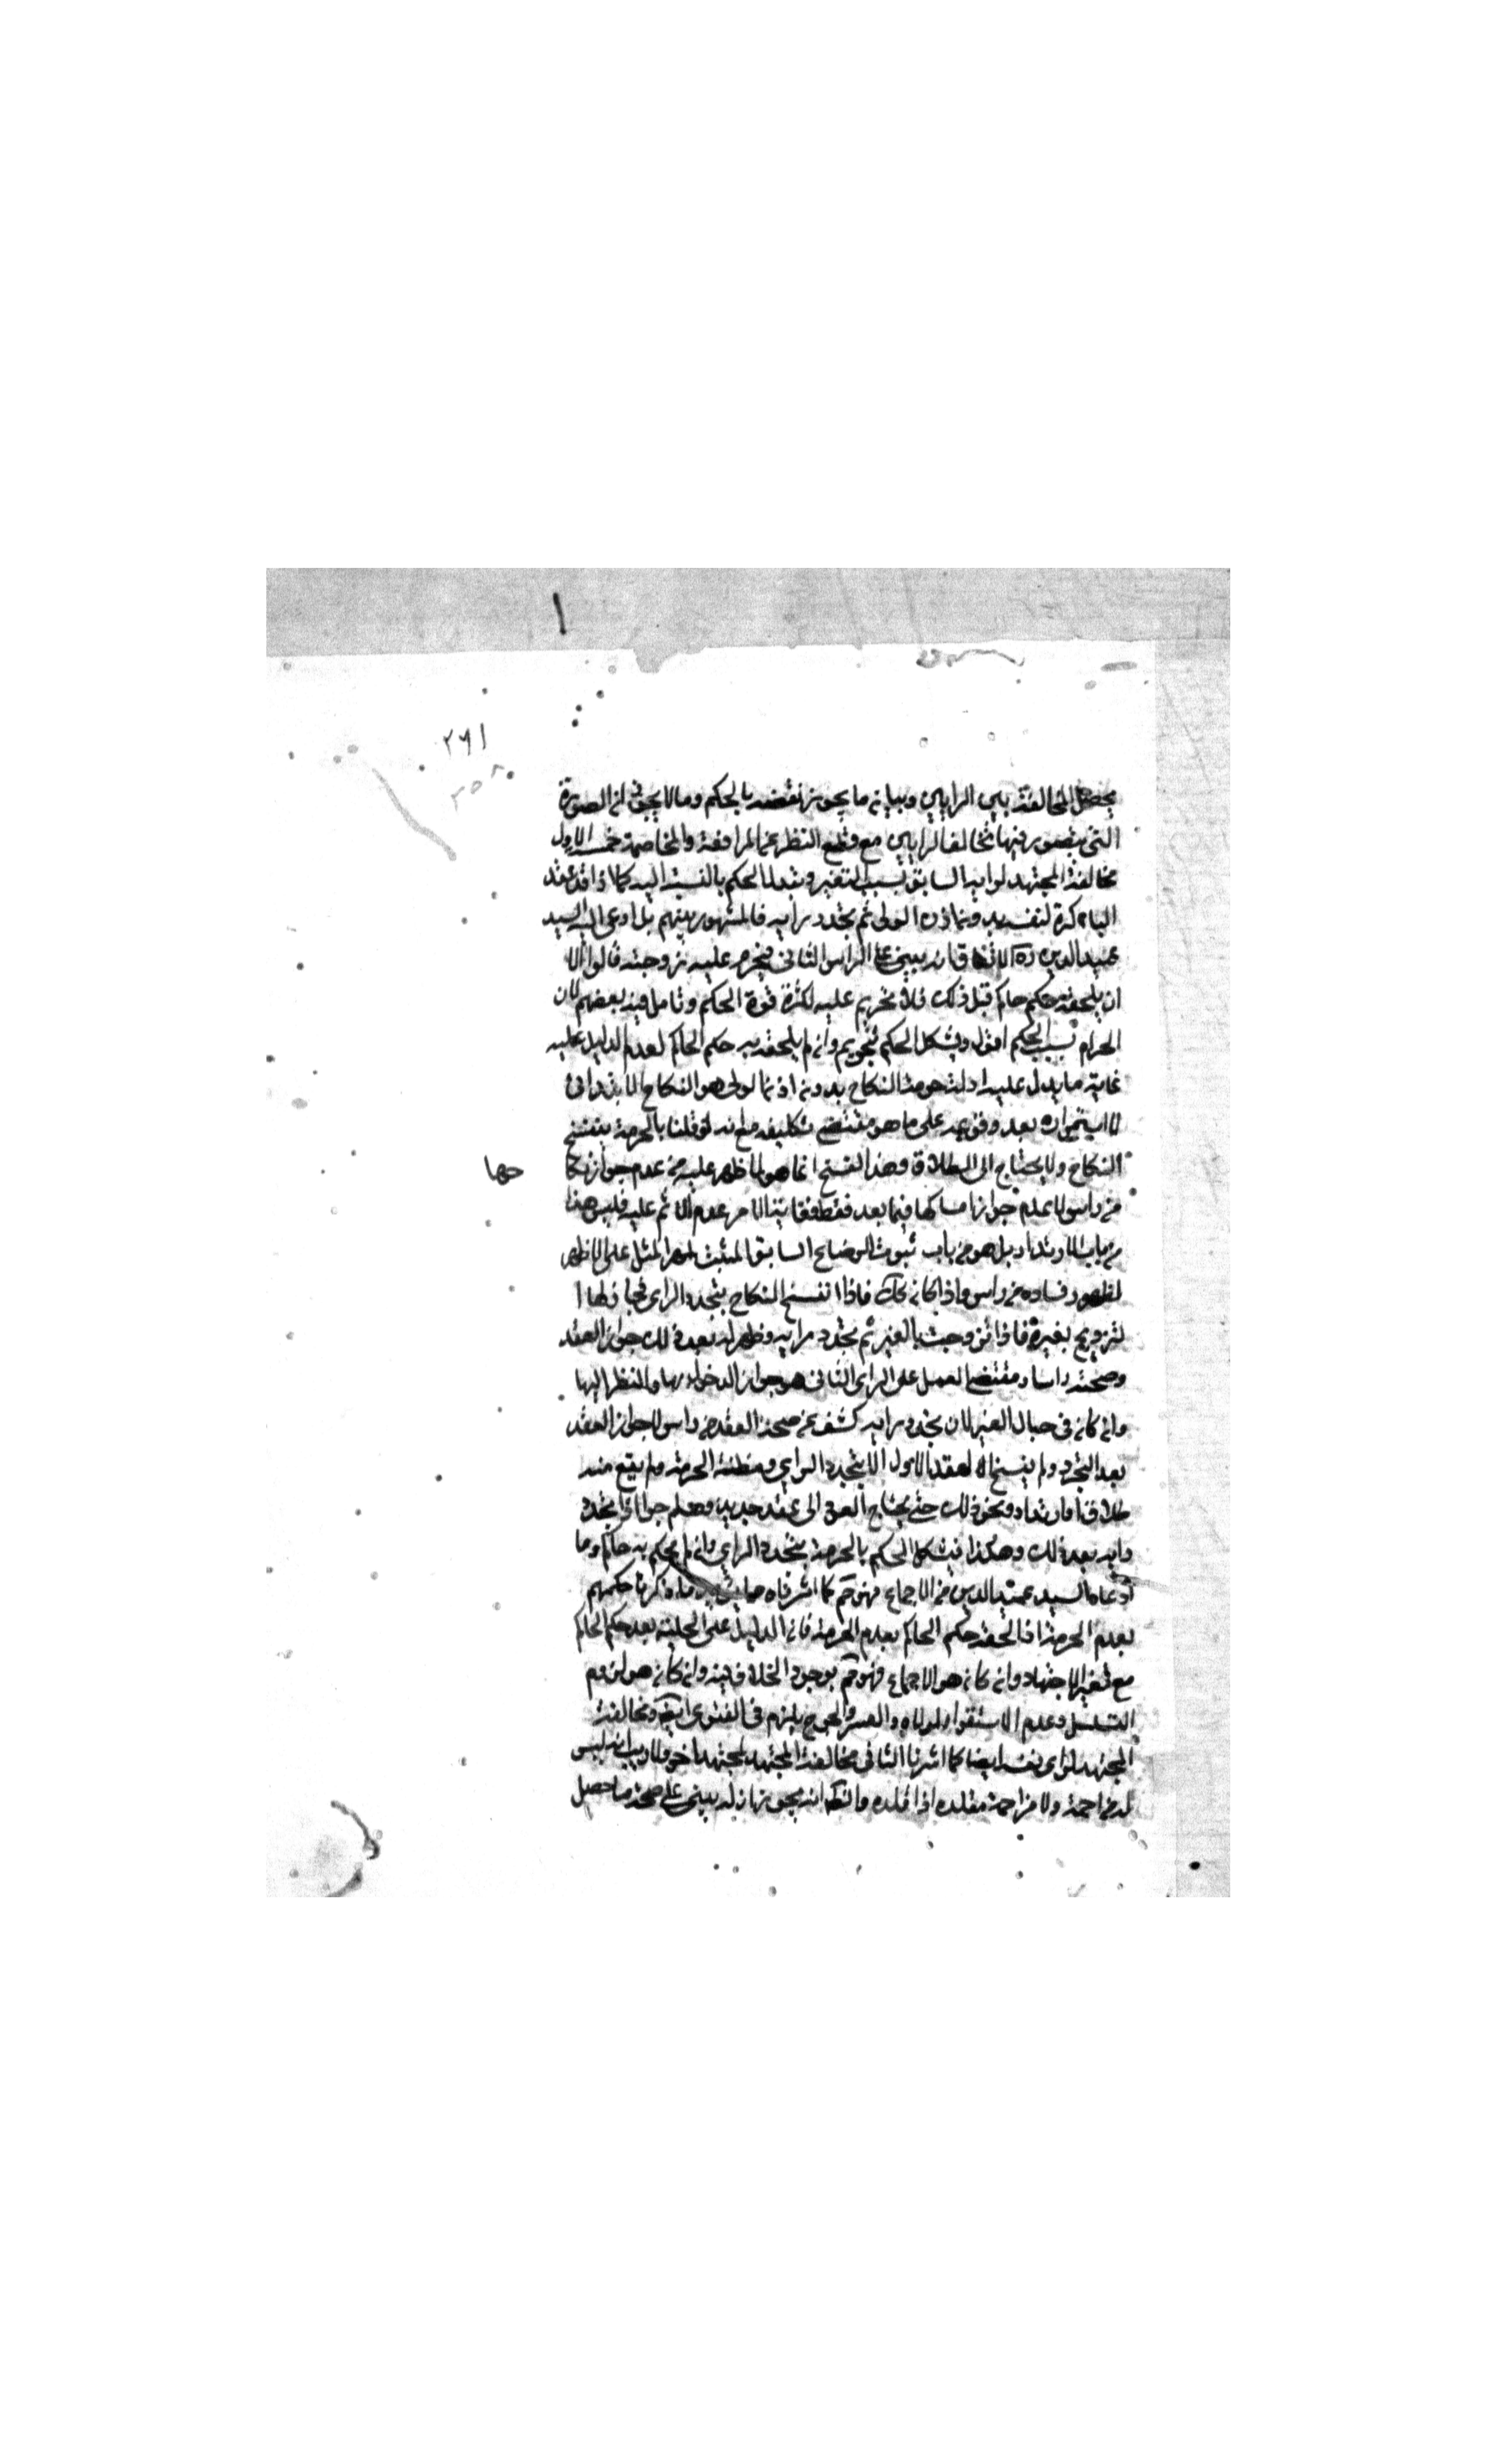 ٢٦١
٢٥٨
يحصل المخالفة بين الرايين وبيان ما يجوز نقضه بالحكم وما لا يجوز ان الصورة
التي يتصور فيها تخالف الرايين مع قطع النظر عن المرافعة والمخاصمة خمسة الاول
مخالفة المجتهد لرايه السابق بسبب التغير وتبدل الحكم بالنسبة اليه كما اذا قد عقد
الباكرة لنفسه بدون اذن الولي ثم تجدد رايه فالمشهور بينهم بل ادعى اليه السيد
عميد الدين ره الاتفاق انه يبني على الراي الثاني فيحرم عليه زوجته قالوا الا
ان يلحقه حكم حاكم قبل ذلك فلا تحريم عليه لكثرة قوة الحكم وتامل فيه بعضهم لان
الحرام بسبب الحكم اقول ويشكل الحكم بتحريم وان لم يلحقه به حكم الحاكم لعدم الدليل عليه
غاية ما يدل عليه ادلة حرمة النكاح بدون اذن الولي هو النكاح الابتدائي
لا استمراره بعد وقوعه على ما هو مقتضى تكليفه مع انه لو قلنا بالحرمة ينفسخ
النكاح ولا يحتاج الى الطلاق وهذا الفسخ انما هو لما ظهر عليه من عدم جواز نكا
حها
من راس لا عدم جواز امساكها فيما بعد فقط فغاية الامر عدم الاثم عليه فليس هذا
من باب الارتداد بل هو من باب ثبوت الرضاع السابق المثبت لمهر المثل على الاظهر
لظهور فساده من راس واذا كان كذلك فاذا انفسخ النكاح بتجدد الراي فيجاز لها ا
لتزويج بغيره فاذا تزوجت بالغير ثم تجدد رايه وظهر له بعد ذلك جواز العقد
وصحته راسا ومقتضى العمل على الراي الثاني هو جواز الدخول بها والنظر اليها
وان كان في حبال الغير لان تجدد رايه كشف عن صحة العقد من راس لا جواز العقد
بعد التجدد ولم ينفسخ العقد الاول الا بتجدد الراي ومظنة الحرمة ولم يقع منه
طلاق او ارتداد ونحو ذلك حتى يحتاج العود الى عقد جديد وهلم جرا اذا تجدد
رايه بعد ذلك وهكذا فيشكل الحكم بالحرمة بتجدد الراي وان لم يحكم به حاكم وما
ادعاه السيد عميد الدين من الاجماع فهو كما اشرنا ما ذكرنا حكمهم
بعدم الحرمة اذا لحقه حكم الحاكم بعدم الحرمة فان الدليل على الحلية بعد حكم الحاكم
مع تغير الاجتهاد وان كان هو الاجماع فهو بوجود الخلاف فيه وان كان هو لزوم
التسلسل وعدم الاستقرار لولاه والعسر والحرج يلزم في الفتوى ايضا ومخالفة
المجتهد لراي نفسه ايضا كما اشرنا الثاني مخالفة المجتهد لمجتهد اخر ولا ريب انه ليس
له مزاحمة ولا مزاحمة مقلده اذا قلده والظاهر انه يجوز له ان يبني على صحة ما حصل